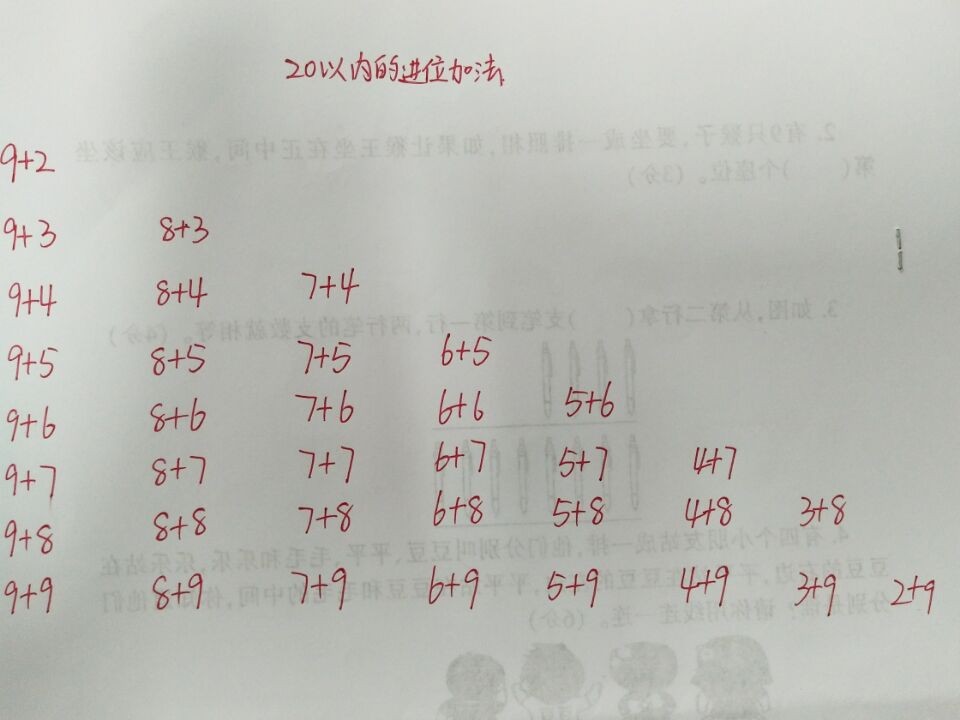 20以内的进位加法
9+2
9+3 8+3
9+4 8+4 7+4
9+5 8+5 7+5 6+5
9+6 8+6 7+6 6+6 5+6
9+7 8+7 7+7 6+7 5+7 4+7
9+8 8+8 7+8 6+8 5+8 4+8 3+8
9+9 8+9 7+9 6+9 5+9 4+9 3+9 2+9
2.有9只猴子,要坐成一排照相,如果让猴王坐在正中间,猴王应该坐
第( )个座位。(3分)
3.如图,从第二行拿( )支笔到第一行,两行笔的支数就相等。(4分)
4.有四个小朋友站成一排,他们分别叫豆豆、平平、毛毛和乐乐,乐乐站在
分别是谁?请你用线连一连。(6分)